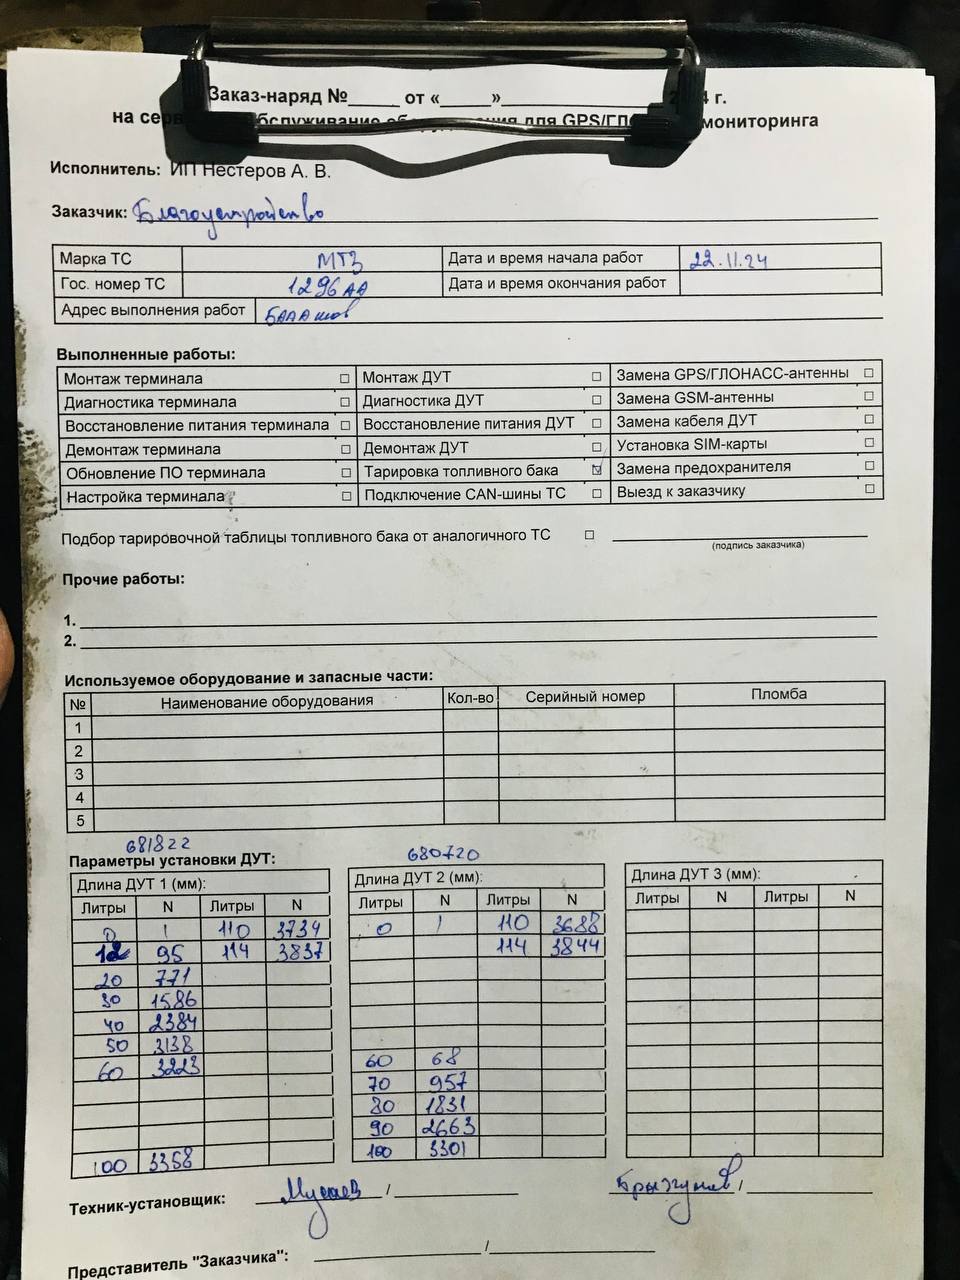 Заказ-наряд №_____ от «_____»_______________ г.
на обслуживание для GPS/ мониторинга
Исполнитель: ИП Нестеров А. В.
Заказчик: Благоустройство
Марка ТС МТЗ Дата и время начала работ 22.11.24
Гос. номер ТС 1296 АА Дата и время окончания работ
Адрес выполнения работ
Выполненные работы:
Монтаж терминала □ Монтаж ДУТ □ Замена GPS/ГЛОНАСС-антенны □
Диагностика терминала □ Диагностика ДУТ □ Замена GSM-антенны □
Восстановление питания терминала □ Восстановление питания ДУТ □ Замена кабеля ДУТ □
Демонтаж терминала □ Демонтаж ДУТ □ Установка SIM-карты □
Обновление ПО терминала □ Тарировка топливного бака ☑ Замена предохранителя □
Настройка терминала □ Подключение CAN-шины ТС □ Выезд к заказчику □
Подбор тарировочной таблицы топливного бака от аналогичного ТС □
(подпись заказчика)
Прочие работы:
1.
2.
Используемое оборудование и запасные части:
№ Наименование оборудования Кол-во Серийный номер Пломба
1
2
3
4
5
681822 680720
Параметры установки ДУТ:
Длина ДУТ 1 (мм): Длина ДУТ 2 (мм): Длина ДУТ 3 (мм):
Литры N Литры N Литры N Литры N Литры N Литры N
0 1 110 3734 0 1 110 3688
12 95 114 3837 114 3844
20 771
30 1586
40 2384
50 3138
60 3223 60 68
70 957
80 1831
90 2663
100 3358 100 3301
Техник-установщик: Мусаев / Брызгунов /
Представитель "Заказчика": /